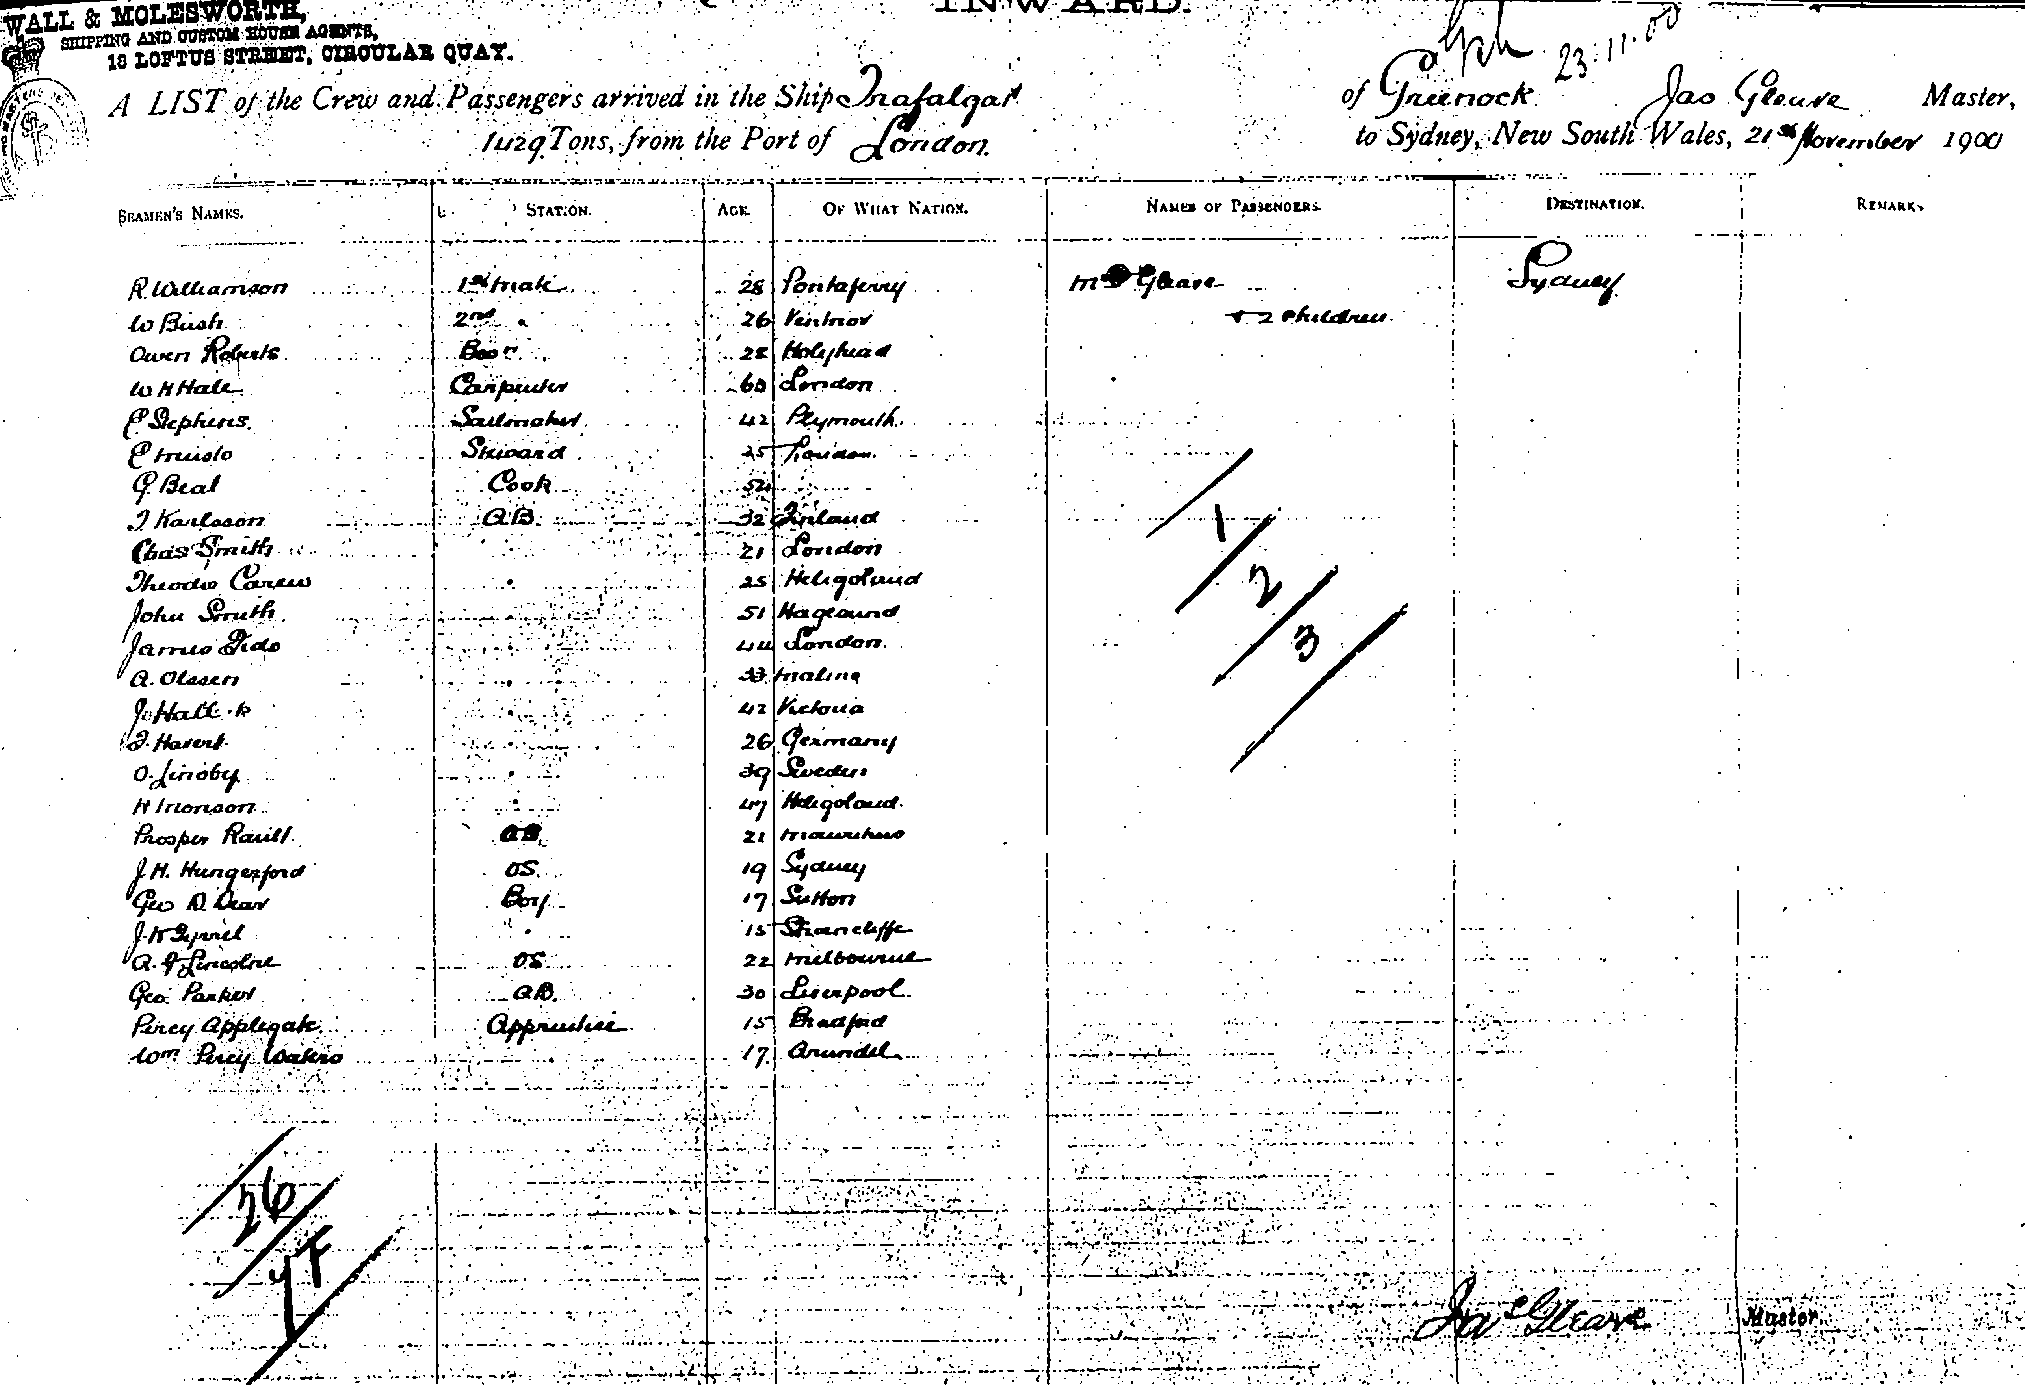 INWARD.
WALL & MOLESWORTH,
SHIPPING AND CUSTOM HOUSE AGENTS,
18 LOFTUS STREET, CIRCULAR QUAY.
23.11.00
A LIST of the Crew and Passengers arrived in the Ship Trafalgar of Greenock Jas Gleave Master,
1429 Tons, from the Port of London. to Sydney, New South Wales, 21st November 1900
SEAMEN'S NAMES. STATION. AGE. OF WHAT NATION. NAMES OF PASSENGERS. DESTINATION. REMARKS
R. Williamson 1st mate 28 Portaferry Mrs Gleave Sydney
W Bush 2nd " 26 Ventnor + 2 children
Owen Roberts Bosn 28 Holyhead
W H Hale Carpenter 60 London
P Stephens Sailmaker 42 Plymouth
Steward 25 London
G Beal Cook 54
J Karlsson AB 32 Finland
Chas Smith 21 London
Theodor Carew " 25 Heligoland
John Smith " 51
James Fido " 44 London
A. Olssen " 33
J. Hall " 42 Victoria
" 26 Germany
O. Lindby " 39 Sweden
H Monson " 47 Heligoland
Prosper AB 21 Mauritius
J. H. Hungerford OS. 19 Sydney
Geo D. Dear Boy 17 Sutton
" 15
A. F Lincolne OS 22 Melbourne
Geo. Parker AB. 30 Liverpool
Percy Applegate Apprentice 15 Bradford
Wm Percy Waters " 17 Arundel
1
2
3
26
Jas Gleave Master